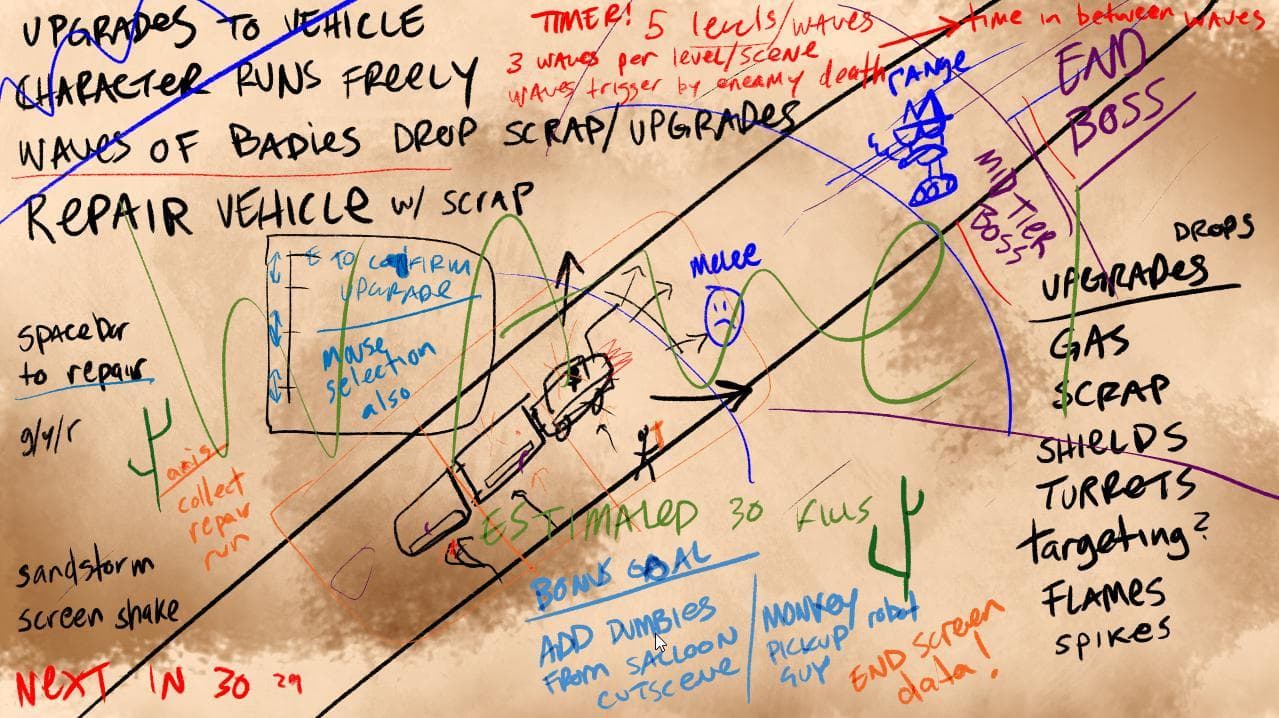 UPGRADES TO VEHICLE
CHARACTER RUNS FREELY
WAVES OF BADIES DROP SCRAP/UPGRADES
REPAIR VEHICLE w/ SCRAP
TIMER! 5 levels/waves
3 waves per level/scene
waves trigger by eneamy death
time in between waves
range
END
BOSS
MID TIER
BOSS
Melee
E TO CONFIRM
UPGRADE
mouse
selection
also
spacebar
to repair
g/y/r
axis
collect
repair
run
sandstorm
screen shake
NEXT IN 30 29
ESTIMATED 30 kills
BONUS GOAL
ADD DUMBIES
FROM SALLOON
CUTSCENE
MONKEY robot
PICKUP
GUY
END screen
data!
DROPS
UPGRADES
GAS
SCRAP
SHIELDS
TURRETS
targeting?
FLAMES
SPIKES